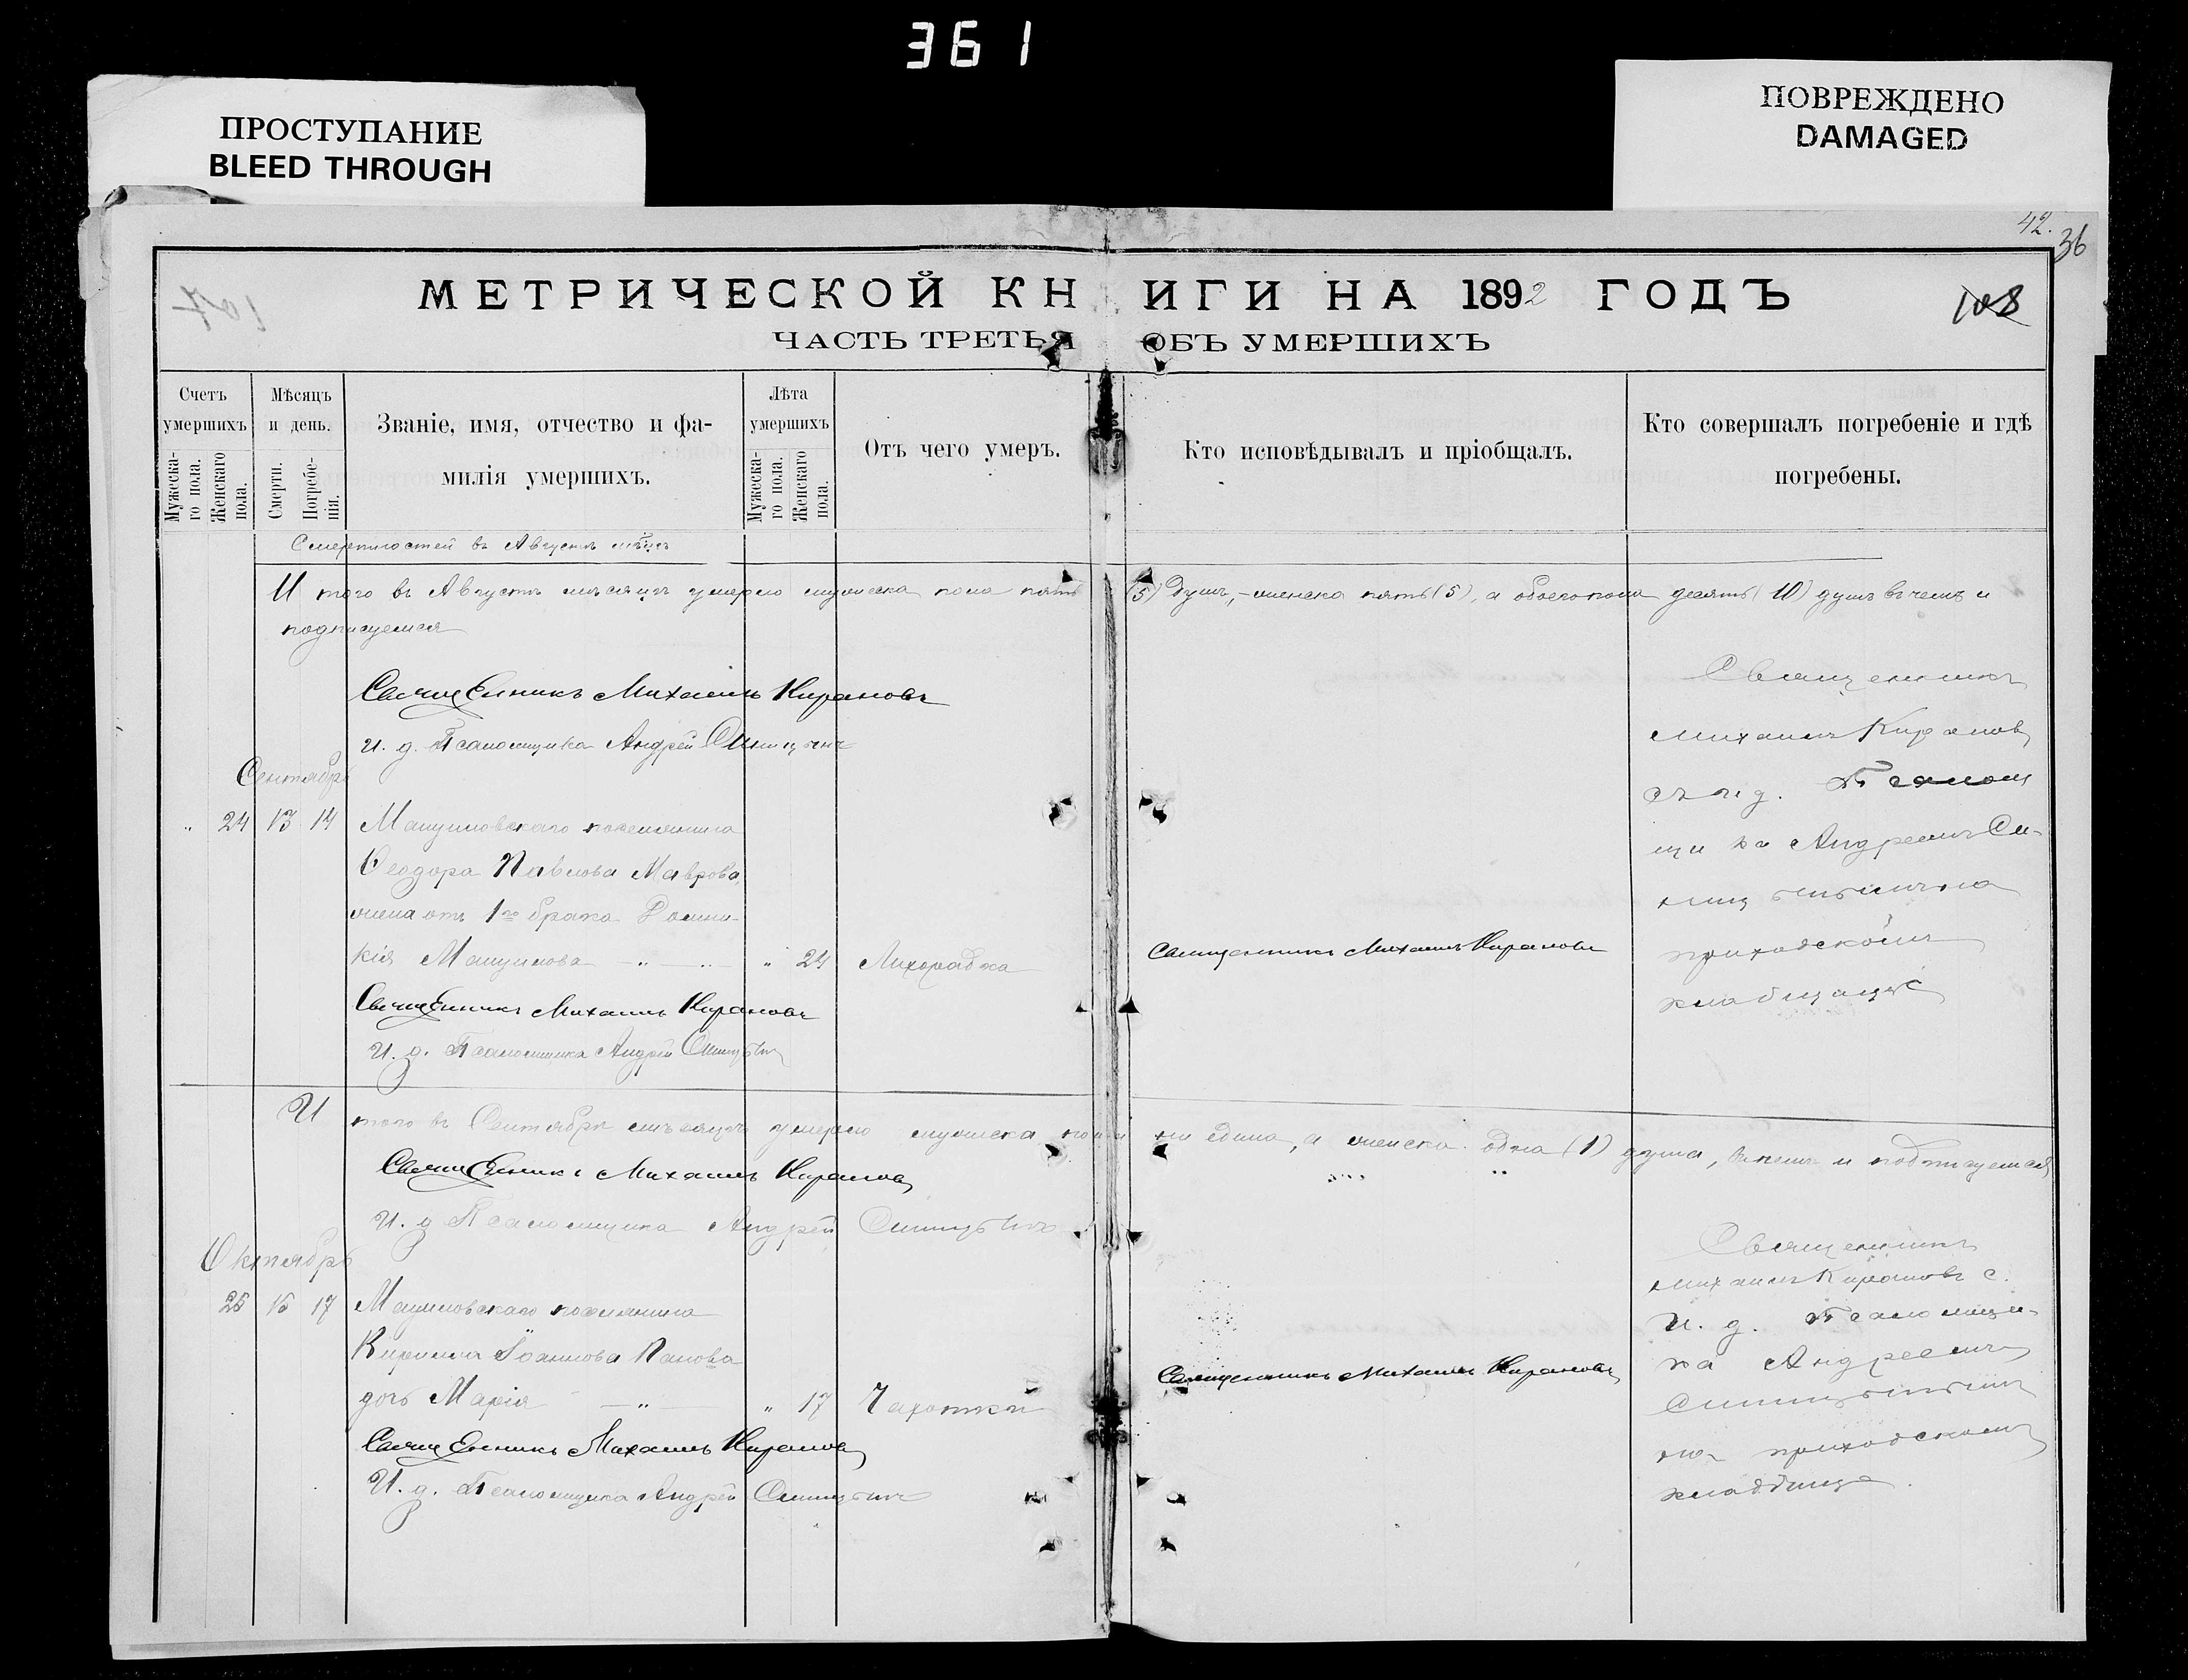 361
ПРОСТУПАНИЕ
BLEED THROUGH
ПОВРЕЖДЕНО
DAMAGED
42.
36
МЕТРИЧЕСКОЙ КНИГИ НА 1892 ГОДЪ
108
ЧАСТЬ ТРЕТЬЯ ОБЪ УМЕРШИХЪ
Счетъ умершихъ
Мужеска-го пола.
Женскаго пола.
Мѣсяцъ и день.
Смерти.
Погребе-нія.
Званіе, имя, отчество и фа-
милія умершихъ.
Лѣта умершихъ
Мужеска-го пола.
Женскаго пола.
Отъ чего умеръ.
Кто исповѣдывалъ и пріобщалъ.
Кто совершалъ погребеніе и гдѣ
погребены.
въ Августѣ
И того въ Августѣ мѣсяцѣ умерло мужеска пола пять (5) душъ, женска пять (5), а обоего пола десять (10) душъ въ чемъ и
подписуемся
Священникъ Михаилъ Кирановъ
И. д. Псаломщика Андрей Синицынъ
Священникъ
Михаилъ Кирановъ
съ и д. Псалом
щика Андреемъ Си-
на
приходскомъ
кладбищѣ
Сентябрь
" 24 13 14
поселянина
Ѳеодора Павлова Маврова,
жена отъ 1го брака Домни-
кія " 24 Лихорадка
Священникъ Михаилъ Кирановъ
Священникъ Михаилъ Кирановъ
И. д. Псаломщика Андрей Синицынъ
И того въ Сентябрѣ мѣсяцѣ умерло мужеска пола ни едина, а женска одна (1) душа, въ чемъ и подписуемся
Священникъ Михаилъ Кирановъ
И. д. Псаломщика Андрей Синицынъ
Октябрь
25 15 17
поселянина
Кирилла Іоаннова Панова
дочь Марія " 17 Чахотки
Священникъ Михаилъ Кирановъ
Священникъ Михаилъ Кирановъ
И. д. Псаломщика Андрей Синицынъ
Священникъ
Михаилъ Кирановъ с.
И. д. Псаломщи-
ка Андреемъ
Синицынымъ
на приходскомъ
кладбище.